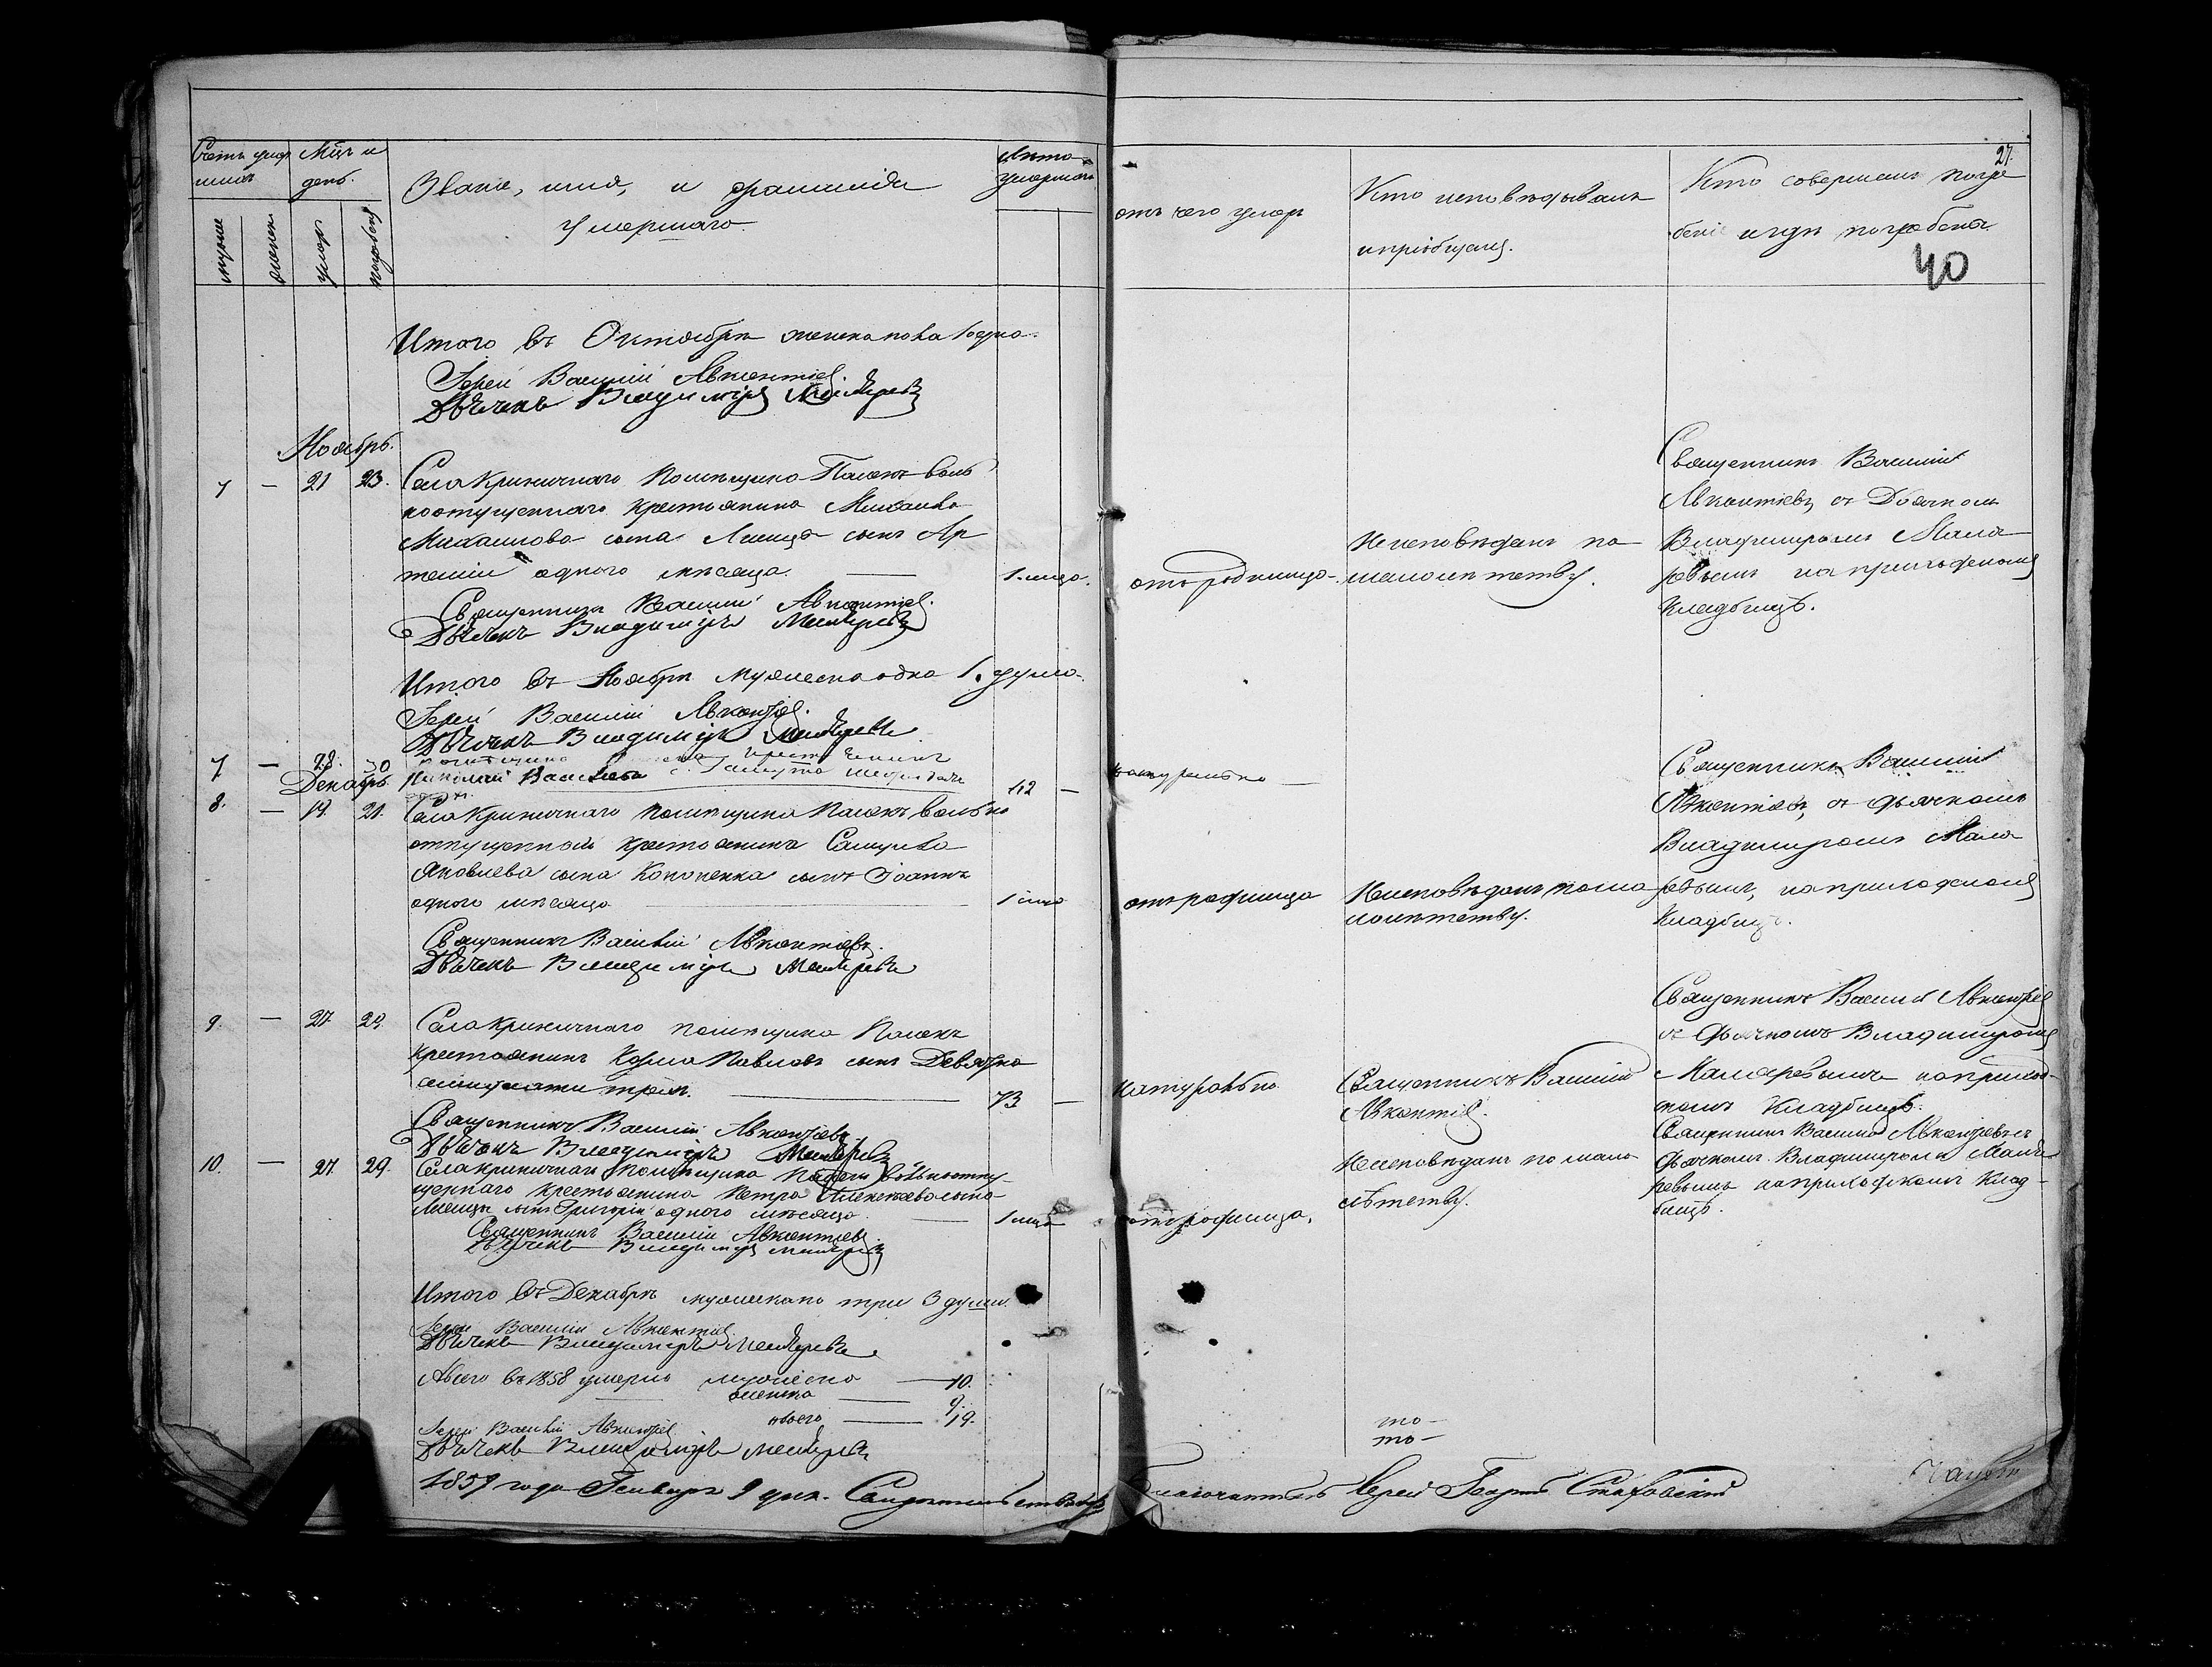 Счетъ умер
шихъ
Мѣц. и
день.
Званіе, имя, и фамилія
умершаго.
Лета
умершаго
мужие
женск
умер
погребен
отъ чего умеръ
Кто исповѣдывалъ
и пріобщалъ.
Кто совершалъ погре
беніе и гдѣ погребены
27.
40
Итого въ Октябрѣ женска пола 1 одна.
Іерей Василій Авксентіев
Дьячекъ Владиміръ
Ноябрь.
7 — 21 23. Села Криничнаго Помѣщика Паленъ воль
ноотпущеннаго крестьянина Михаила
Михаилова сына Лисица сынъ Ар
темій одного мѣсяца. — 1 мѣца.
отъ родимца.
Неисповѣданъ по
малолѣтству.
Священникъ Василій
Авксентіевъ съ Дьячкомъ
Владиміромъ Мала
ревымъ на приходскомъ
Кладбищѣ.
Священникъ Василій Авксентіев.
Дьячекъ Владиміръ
Итого въ Ноябрѣ мужеска одна 1. душа.
Іерей Василій Авксентіев.
Дьячекъ Владиміръ
7 — 28. 30
Николай Васильевъ
42 —
натурально —
Декабрь
8. — 19. 21. Села Криничнаго помѣщика Паленъ вольно
отпущенный крестьянинъ Самуила
Яковлева сына Кононенка сынъ Іоаннъ
одного мѣсяца — 1 мѣца
отъ родимца
Неисповѣданъ по ма
лолѣтству.
Священникъ Василій
Авксентіевъ, съ дьячкомъ
Владиміромъ Мала
ревымъ, на приходскомъ
Кладбищѣ.
Священникъ Василій Авксентіевъ.
Дьячекъ Владиміръ
9. — 27. 29. Села Криничнаго помѣщика Паленъ
крестьянинъ Козма Павловъ сынъ Девятка
семидесяти трехъ. — 73 —
натурально
Священникъ Василій
Авксентіев.
Священникъ Василій Авксентіев
съ Дьячкомъ Владиміромъ
Маларевымъ на приход-
скомъ Кладбищѣ.
Священникъ Василій Авксентіевъ.
Дьячекъ Владиміръ
10. — 27. 29. Села Криничнаго помѣщика Паленъ вольноотпу-
щеннаго крестьянина Петра Алексѣева сына
Лисицы сынъ Григорій одного мѣсяца. — 1 мѣца
отъ родимца.
Неисповѣданъ по мало
лѣтству.
Священникъ Василій Авксентіевъ съ
Дьячкомъ Владиміромъ Мала
ревымъ на приходскомъ Клад-
бищѣ.
Священникъ Василій Авксентіев.
Дьячекъ Владиміръ
Итого въ Декабрѣ мужеска по три 3 души.
Іерей Василій Авксентіев
Дьячекъ Владиміръ
Всего въ 1858 умерло мужеска — 10.
женска — 9.
всего — 19.
то —
то —
Іерей Василій Авксентіев
Дьячекъ Владиміръ
1859 года Генваря 9 дня. Свидетельствовалъ
Благочинный Іерей Георгій Стаховскій